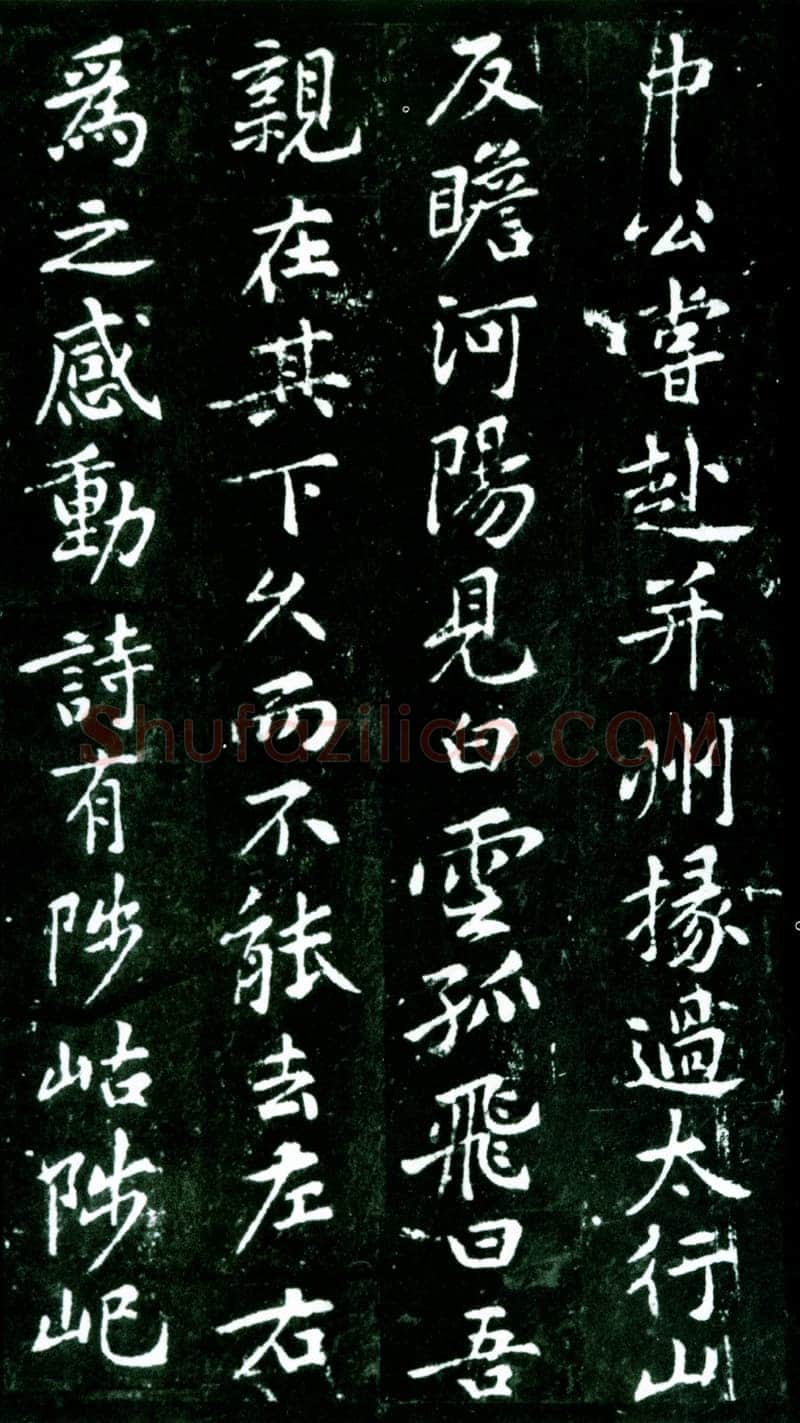 中公嘗赴并州掾過太行山
反瞻河陽見白雲孤飛曰吾
親在其下久而不能去左右
爲之感動詩有陟岵陟屺
Shufazilico.COM